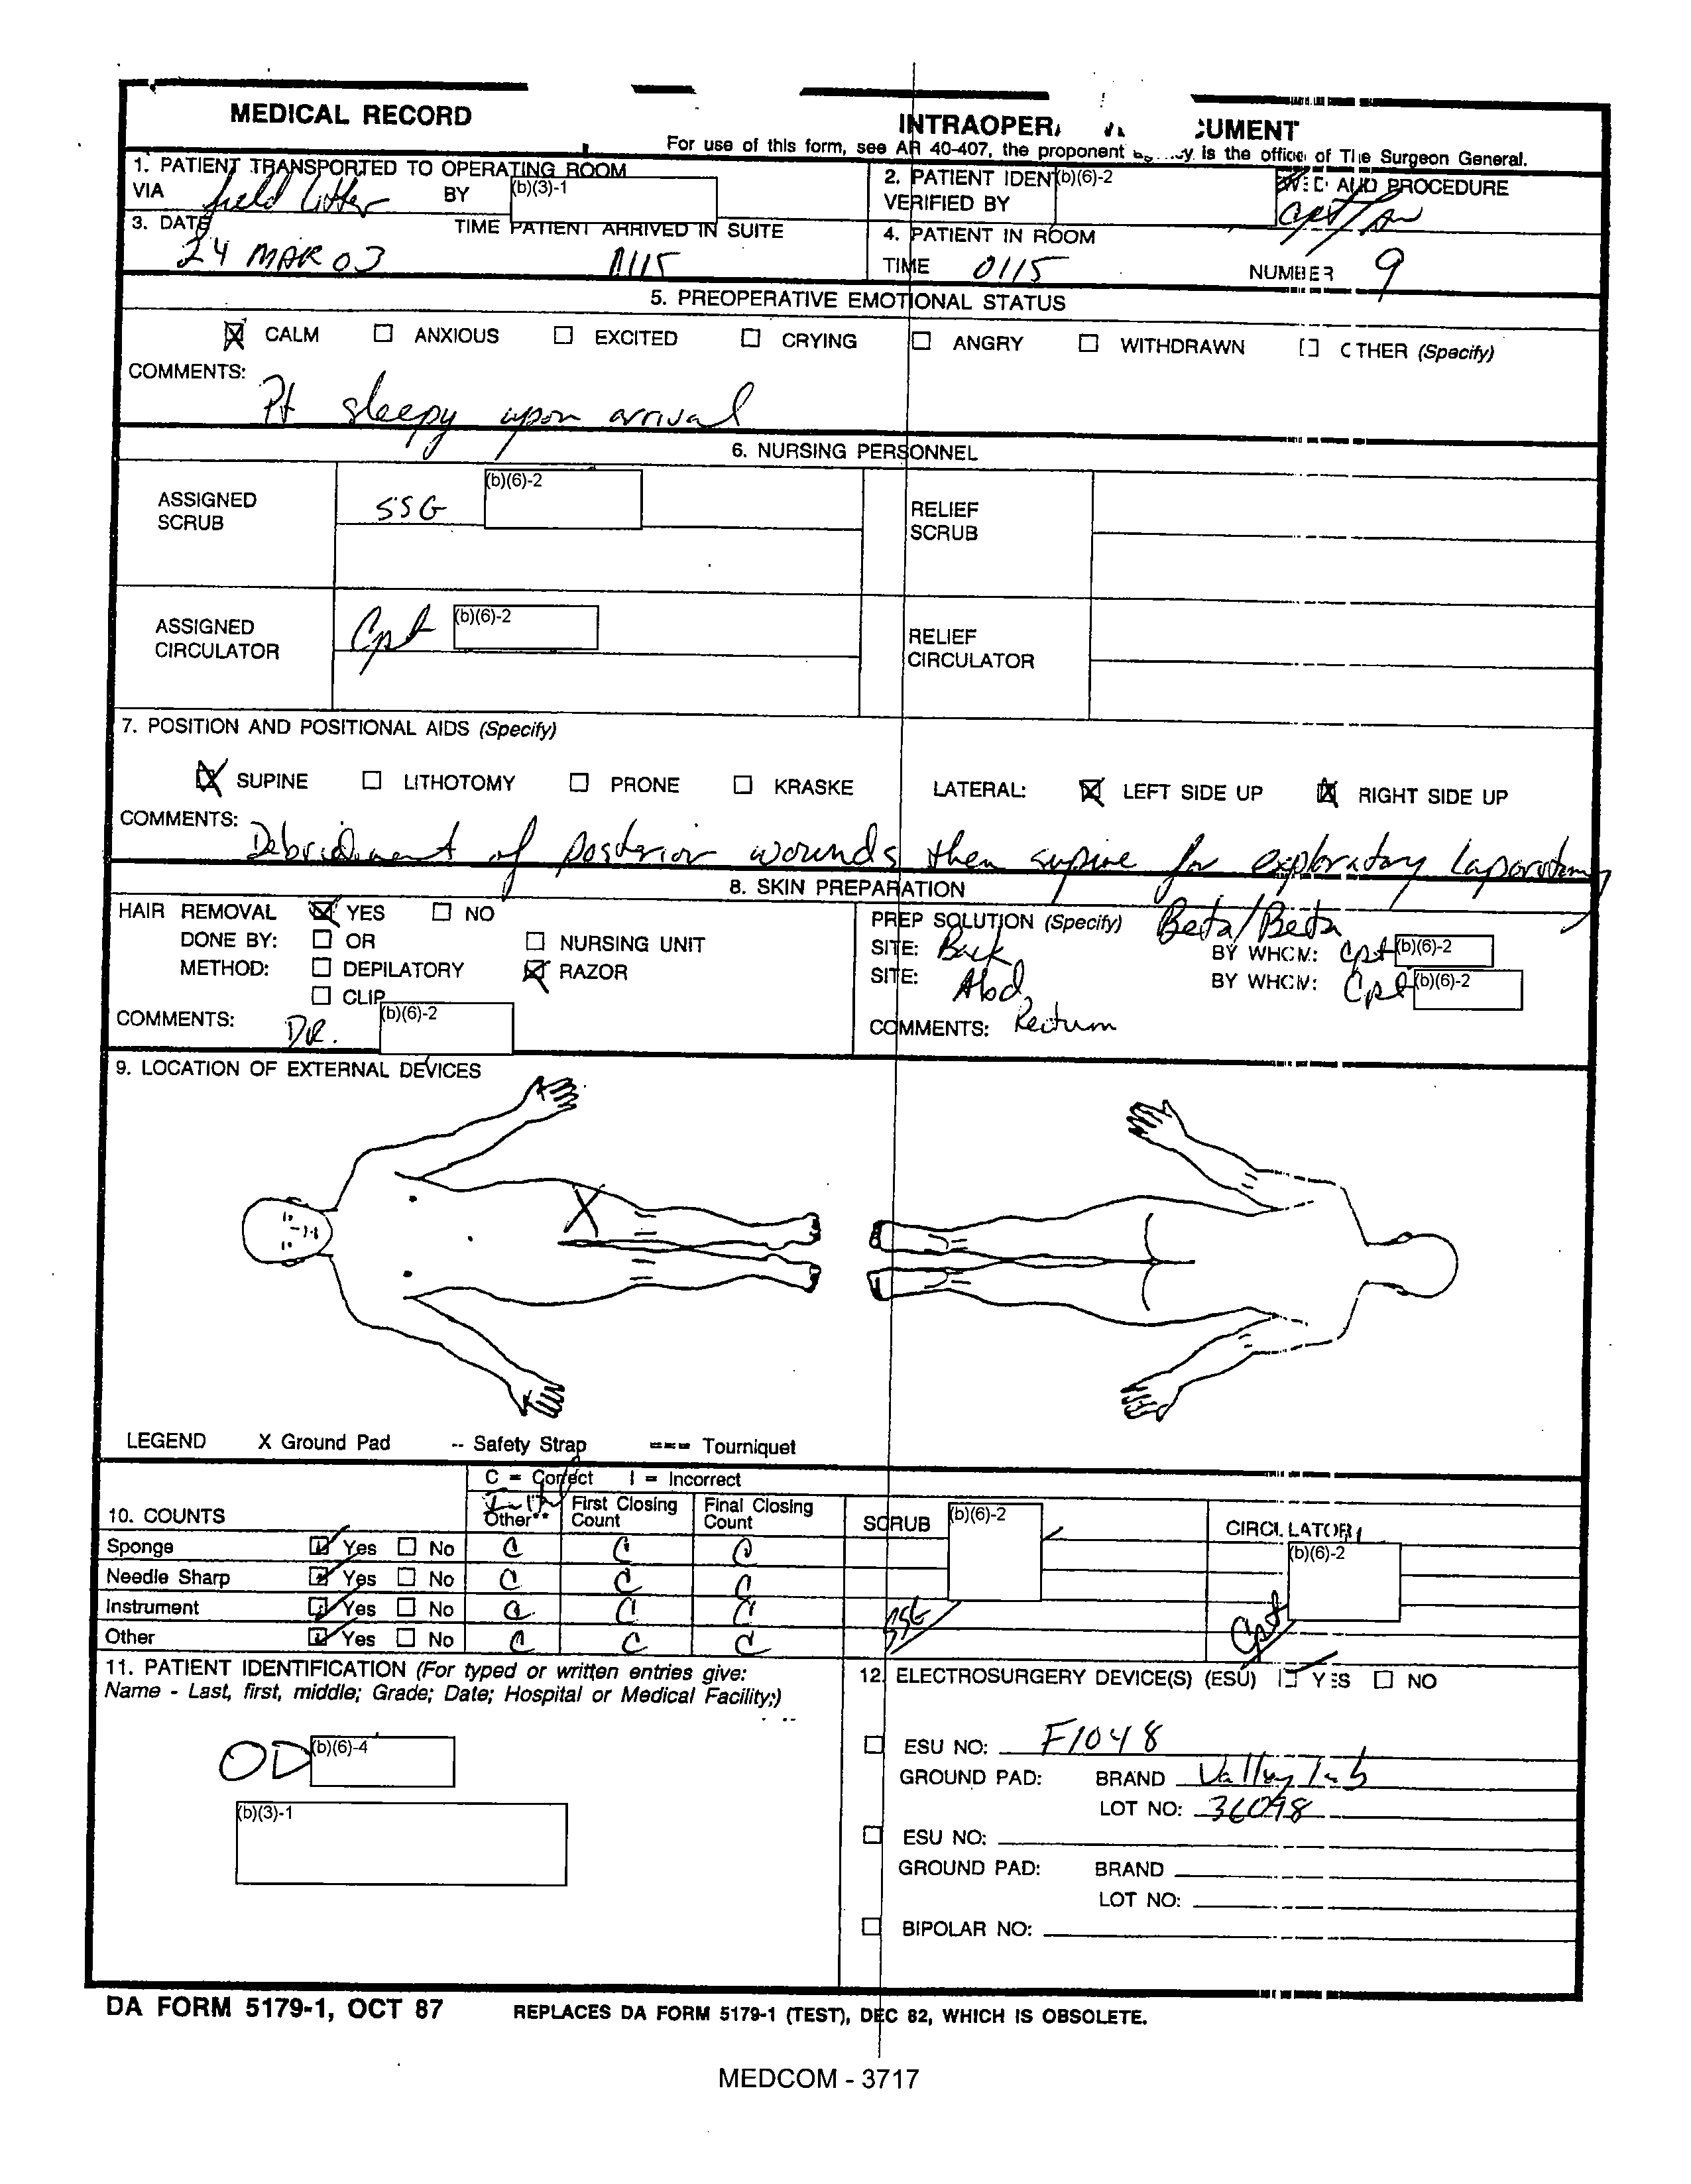 MEDICAL RECORD
INTRAOPER CUMENT
For use of this form, see AR 40-407, the proponent is the office of The Surgeon General.
1. PATIENT TRANSPORTED TO OPERATING ROOM
VIA field litter BY (b)(3)-1
2. PATIENT IDEN (b)(6)-2 AND PROCEDURE
VERIFIED BY
3. DATE TIME PATIENT ARRIVED IN SUITE
24 MAR 03 0115
4. PATIENT IN ROOM
TIME 0115 NUMBER 9
5. PREOPERATIVE EMOTIONAL STATUS
CALM ANXIOUS EXCITED CRYING ANGRY WITHDRAWN OTHER (Specify)
COMMENTS:
Pt sleepy upon arrival
6. NURSING PERSONNEL
ASSIGNED SCRUB SSG (b)(6)-2 RELIEF SCRUB
ASSIGNED CIRCULATOR Cpt (b)(6)-2 RELIEF CIRCULATOR
7. POSITION AND POSITIONAL AIDS (Specify)
SUPINE LITHOTOMY PRONE KRASKE LATERAL: LEFT SIDE UP RIGHT SIDE UP
COMMENTS: Debridement of posterior wounds then supine for exploratory laporotomy
8. SKIN PREPARATION
HAIR REMOVAL YES NO
DONE BY: OR NURSING UNIT
METHOD: DEPILATORY RAZOR
CLIP
COMMENTS: DR. (b)(6)-2
PREP SOLUTION (Specify) Beta/Beta
SITE: Back BY WHOM: Cpt (b)(6)-2
SITE: Abd, BY WHOM: Cpt (b)(6)-2
COMMENTS: Rectum
9. LOCATION OF EXTERNAL DEVICES
X
LEGEND X Ground Pad -- Safety Strap === Tourniquet
C = Correct I = Incorrect
10. COUNTS Other** First Closing Count Final Closing Count SCRUB (b)(6)-2 CIRCULATOR (b)(6)-2
Sponge Yes No C C C
Needle Sharp Yes No C C C
Instrument Yes No C C C
Other Yes No C C C
SSG Cpt
11. PATIENT IDENTIFICATION (For typed or written entries give:
Name - Last, first, middle; Grade; Date; Hospital or Medical Facility;)
OD (b)(6)-4
(b)(3)-1
12. ELECTROSURGERY DEVICE(S) (ESU) YES NO
ESU NO: F1048
GROUND PAD: BRAND Valleylab
LOT NO: 36098
ESU NO:
GROUND PAD: BRAND
LOT NO:
BIPOLAR NO:
DA FORM 5179-1, OCT 87 REPLACES DA FORM 5179-1 (TEST), DEC 82, WHICH IS OBSOLETE.
MEDCOM - 3717